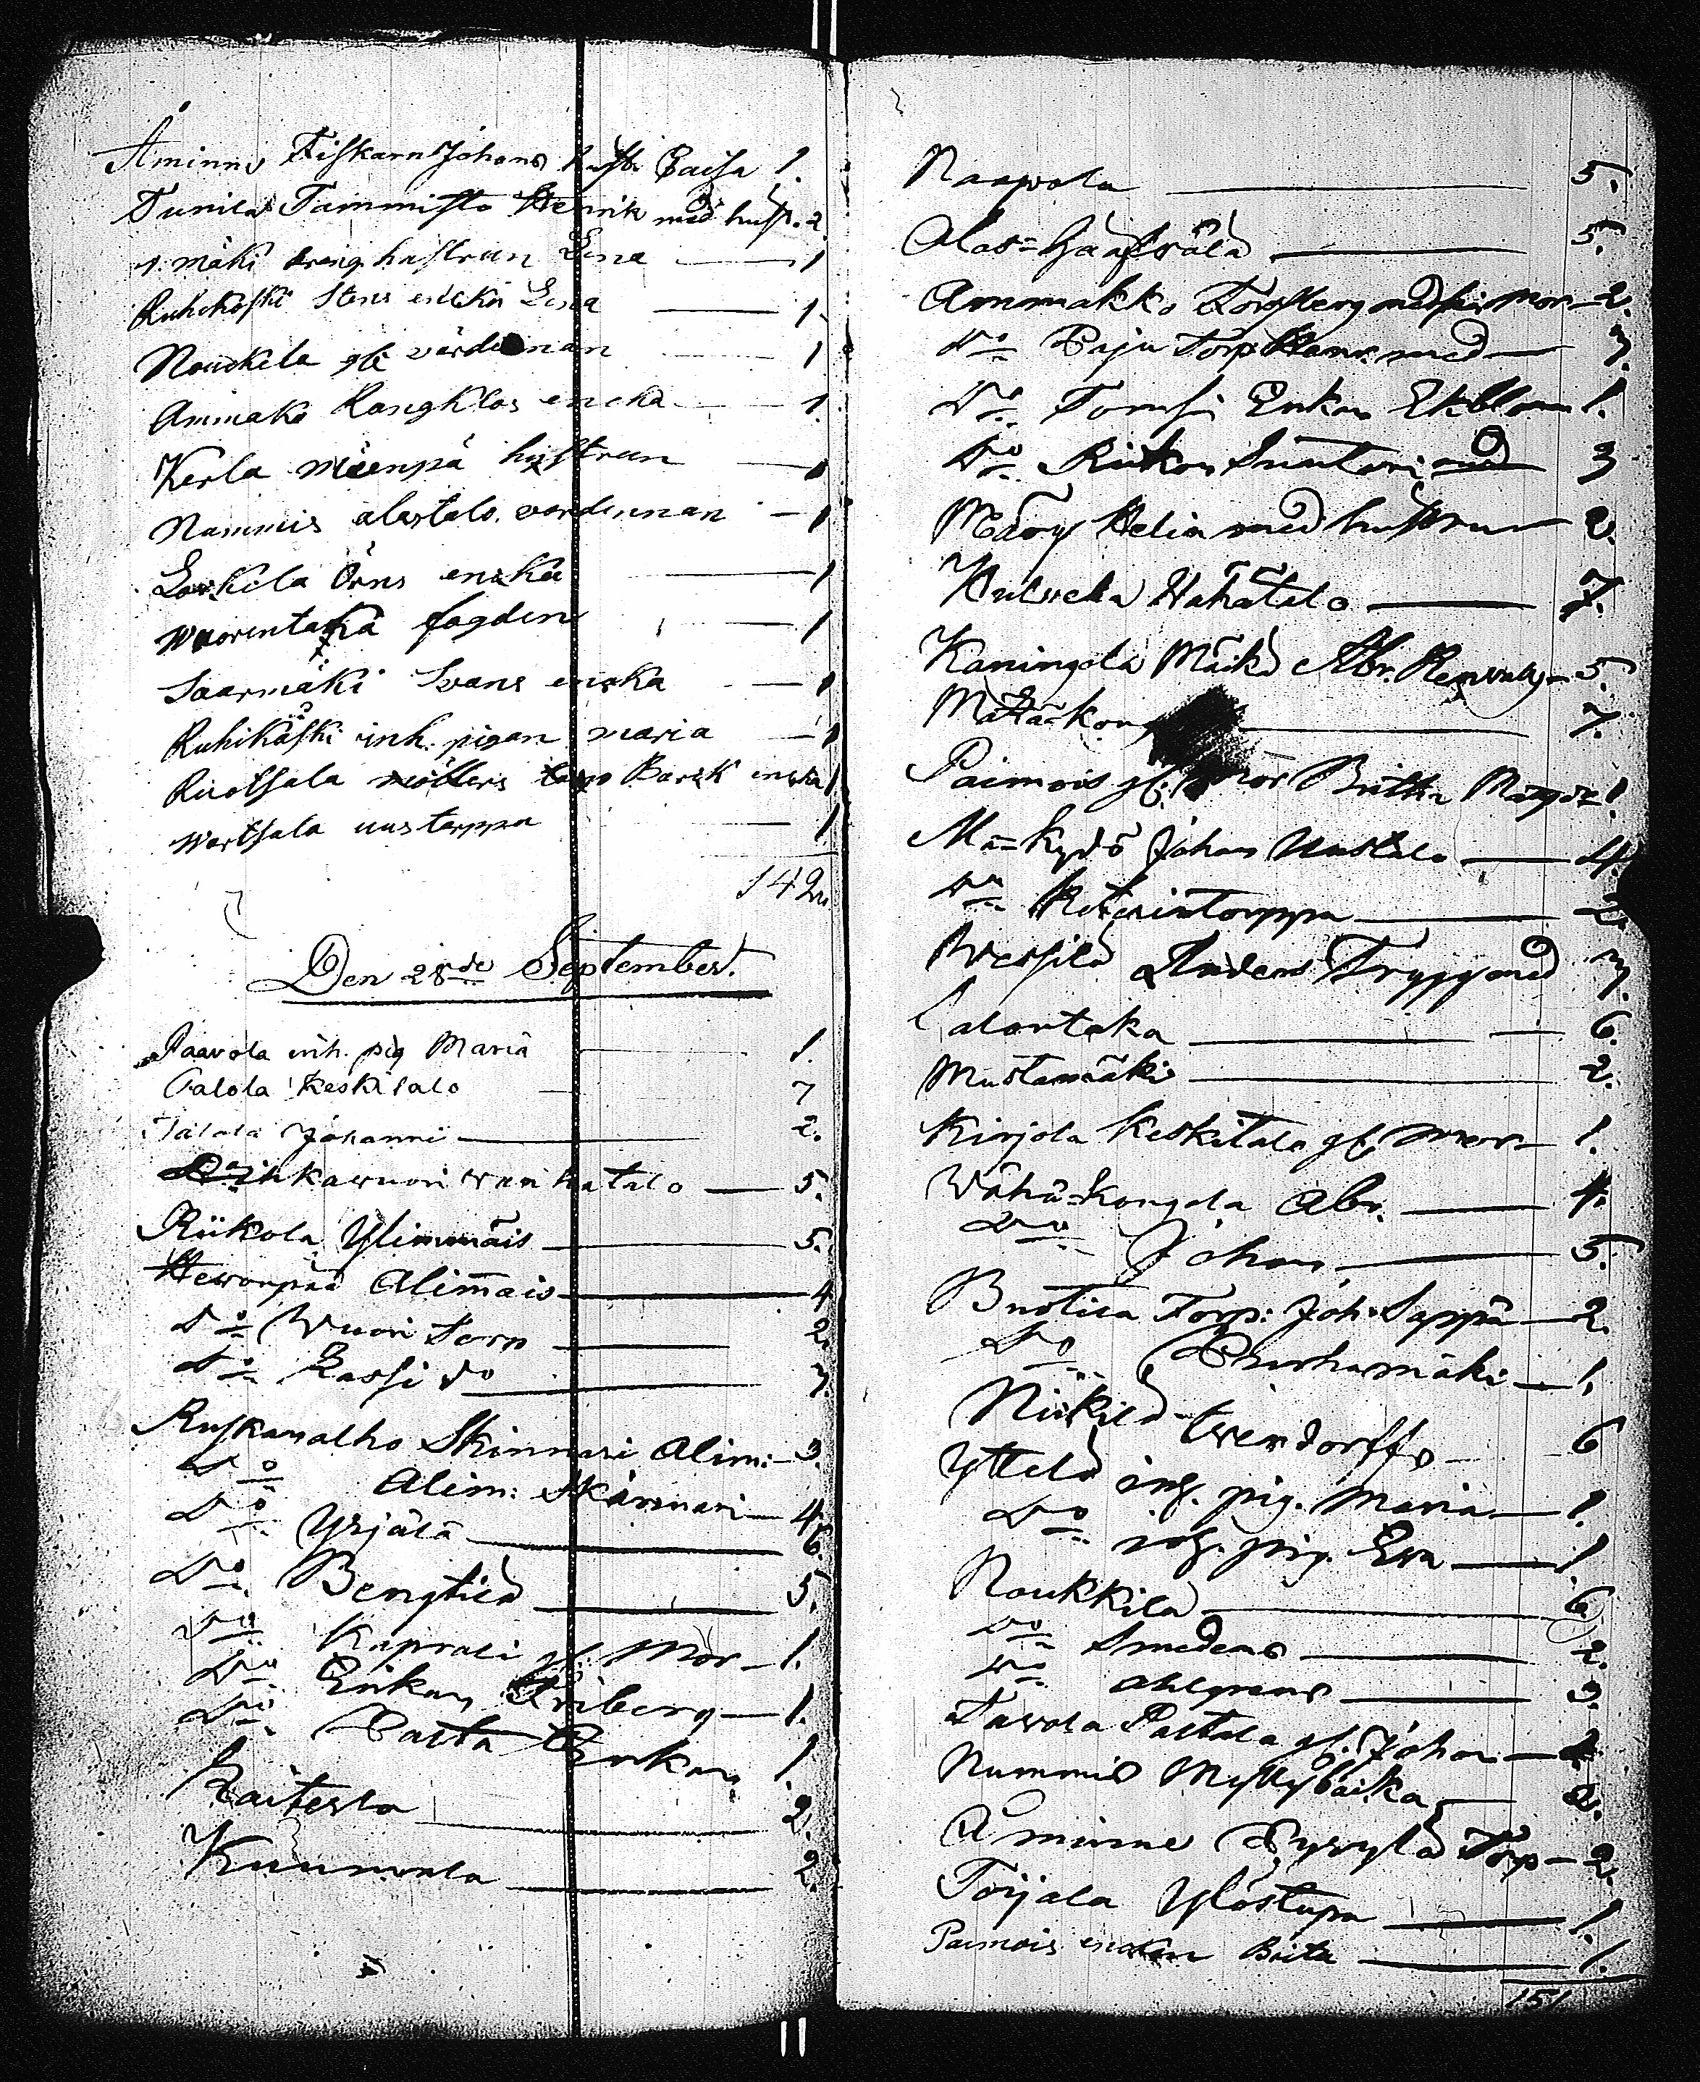 Åminne Fiskarn Johans hust. Caisa 1.
Tunila Tammisto Henrik med hust. 2.
n. mäki dreng hustrun Lena — 1
Ruhikoski Stens encka Lena — 1.
Noukela gl. värdinnan — 1
Ammako Rangklos encka — 1.
Kerla Mäenpä hustrun — 1
Nammis alastalo värdinnan — 1
Laukila Örns encka — 1
Wuorentaka fogden — 1
Saarmäki Svans encka — 1
Ruhikåski inh. pigan maria — 1
Ruotsala möllers Barck encka 1
Wartsala uustorppa — 1
142
Den 28de September.
Paavola inh. pig Maria 1.
Palola Keskitalo 7
Talala Johanni — 2.
Dihkawuori wanhatalo — 5.
Riikola Ylimmäis — 5.
Hewonpää Alimais — 4
Do Wuori Torp — 2.
Do Kassi do — 7.
Ruskanalho Skinnari Alim: — 3.
Do Alim: Skinnari — 4.
Do Yrjälä — 6.
Do Bengtilä — 5.
Do Kaprali gl. Mor — 1.
Do Enkan Friberg — 1.
Do Pasta Enkan 1.
Raiterla — 2.
Kuumola — 2.
Naapola — 5.
Alas=Haafwäla — 5.
Ammakko Forsberg med sin Mor — 2.
Do Paju Torp Hans med — 7.
Do Tomsi Enkan Ekblom 1.
Do Riikon Suutari med 3
Mäary Helin med hustrun — 2.
Hulwela Wähätalo — 7.
Kaningola Mäikö Abr. — 5.
Mattaakon — 7.
Paimois gl. mor Britha 1
M=Kydö Johan Uustalo — 4.
Do Keterintorppa — 2.
Wessilä Anders Trygg med 7.
Lalontaka — 6.
Mustamäki — 2.
Kirjola Keskitalo gl. mor — 1.
Wähä=Kongola Abr. — 4.
Do Johan — 5.
Bustila Torp: Joh: Seppä — 2.
Do Purhamäki — 1.
Niikilä Weendorffs — 6
Yttelä inh. pig. Maria — 1.
Do inh. pig. Ewa — 1.
Noukkila — 6
Do Smedens — 2.
Do Ahlgrens — 3.
Tawola Pastala gl. Johan — 1
Nummis Myllybacka — 2.
Åminne Syvylä Torp — 2.
Torjala Ylöstupa — 1.
Paimois enckan Brita — 1.
151